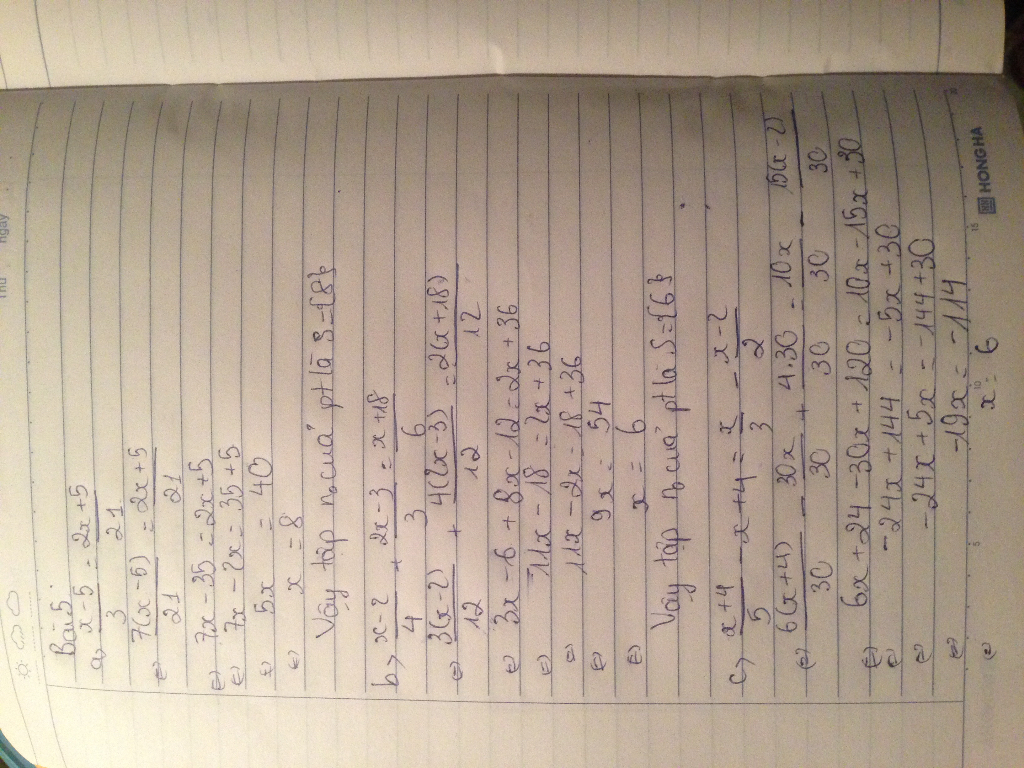 Thứ ngày
Bài 5:
a> x-5/3 = 2x+5/21
(=) 7(x-5)/21 = 2x+5/21
(=) 7x-35=2x+5
(=) 7x-2x=35+5
(=) 5x = 40
(=) x=8
Vậy tập n₀ của pt là S={8}
b> x-2/4 + 2x-3/3 = x+18/6
(=) 3(x-2)/12 + 4(2x-3)/12 = 2(x+18)/12
(=) 3x-6+8x-12=2x+36
(=) 11x-18=2x+36
(=) 11x-2x=18+36
(=) 9x = 54
(=) x = 6
Vậy tập n₀ của pt là S={6}
c> x+4/5 - x+4 = x/3 - x-2/2
(=) 6(x+4)/30 - 30x/30 + 4.30/30 = 10x/30 - 15(x-2)/30
(=) 6x+24-30x+120=10x-15x+30
(=) -24x+144 = -5x+30
(=) -24x+5x = -144+30
(=) -19x= -114
(=) x = 6
5 10 15 20
HONG HA